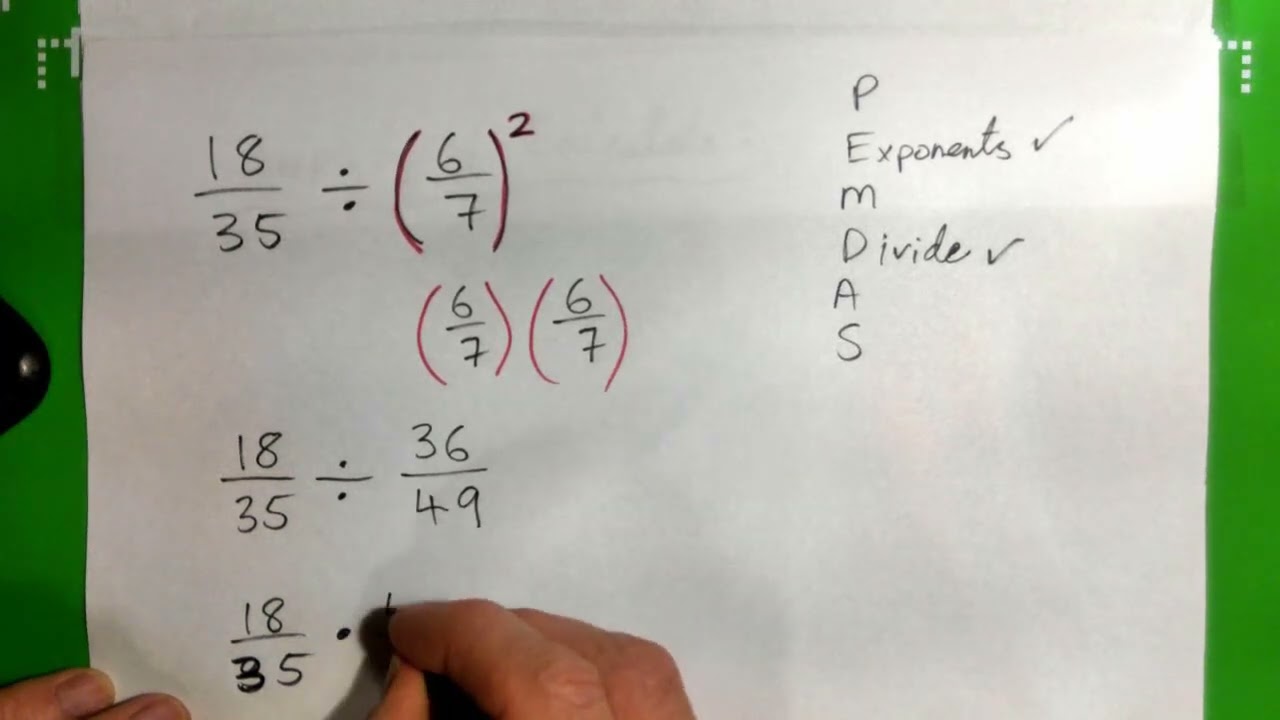 18/35 ÷ (6/7)²
(6/7)(6/7)
18/35 ÷ 36/49
18/35 ·
P
Exponents ✓
m
Divide ✓
A
S